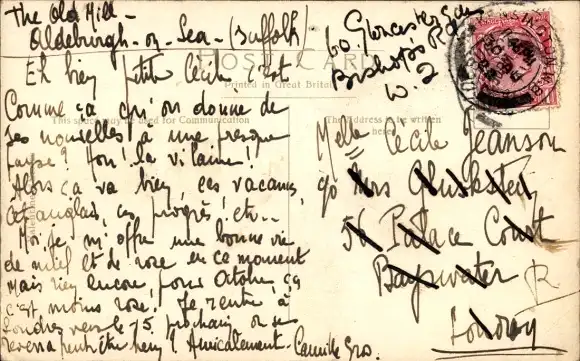 The Old Mill -
Aldeburgh - on - Sea - (Suffolk)
POST CARD
Printed in Great Britain
This space may be used for Communication
The Address to be written
here
Eh bien petite Cécile c'est
Comme ça qu'on donne de
ses nouvelles à une presque
payse? Hou! la vilaine!!
Alors ça va bien, ces vacances,
cet anglais, ces progrès, etc..
Moi je m'offre une bonne vie
de miel et de rose en ce moment
Mais rien encore, pour Octobre, ça
c'est moins rose. Je rentre à
Londres vers le 15 prochain on se
reverra peut être hein? Amicalement - Camille Gro.
60. Gloucester Gdns
Bishops Rd
W. 2
Melle Cécile Jeanson
c/o Mrs
56 Palace Court
Bayswater
London